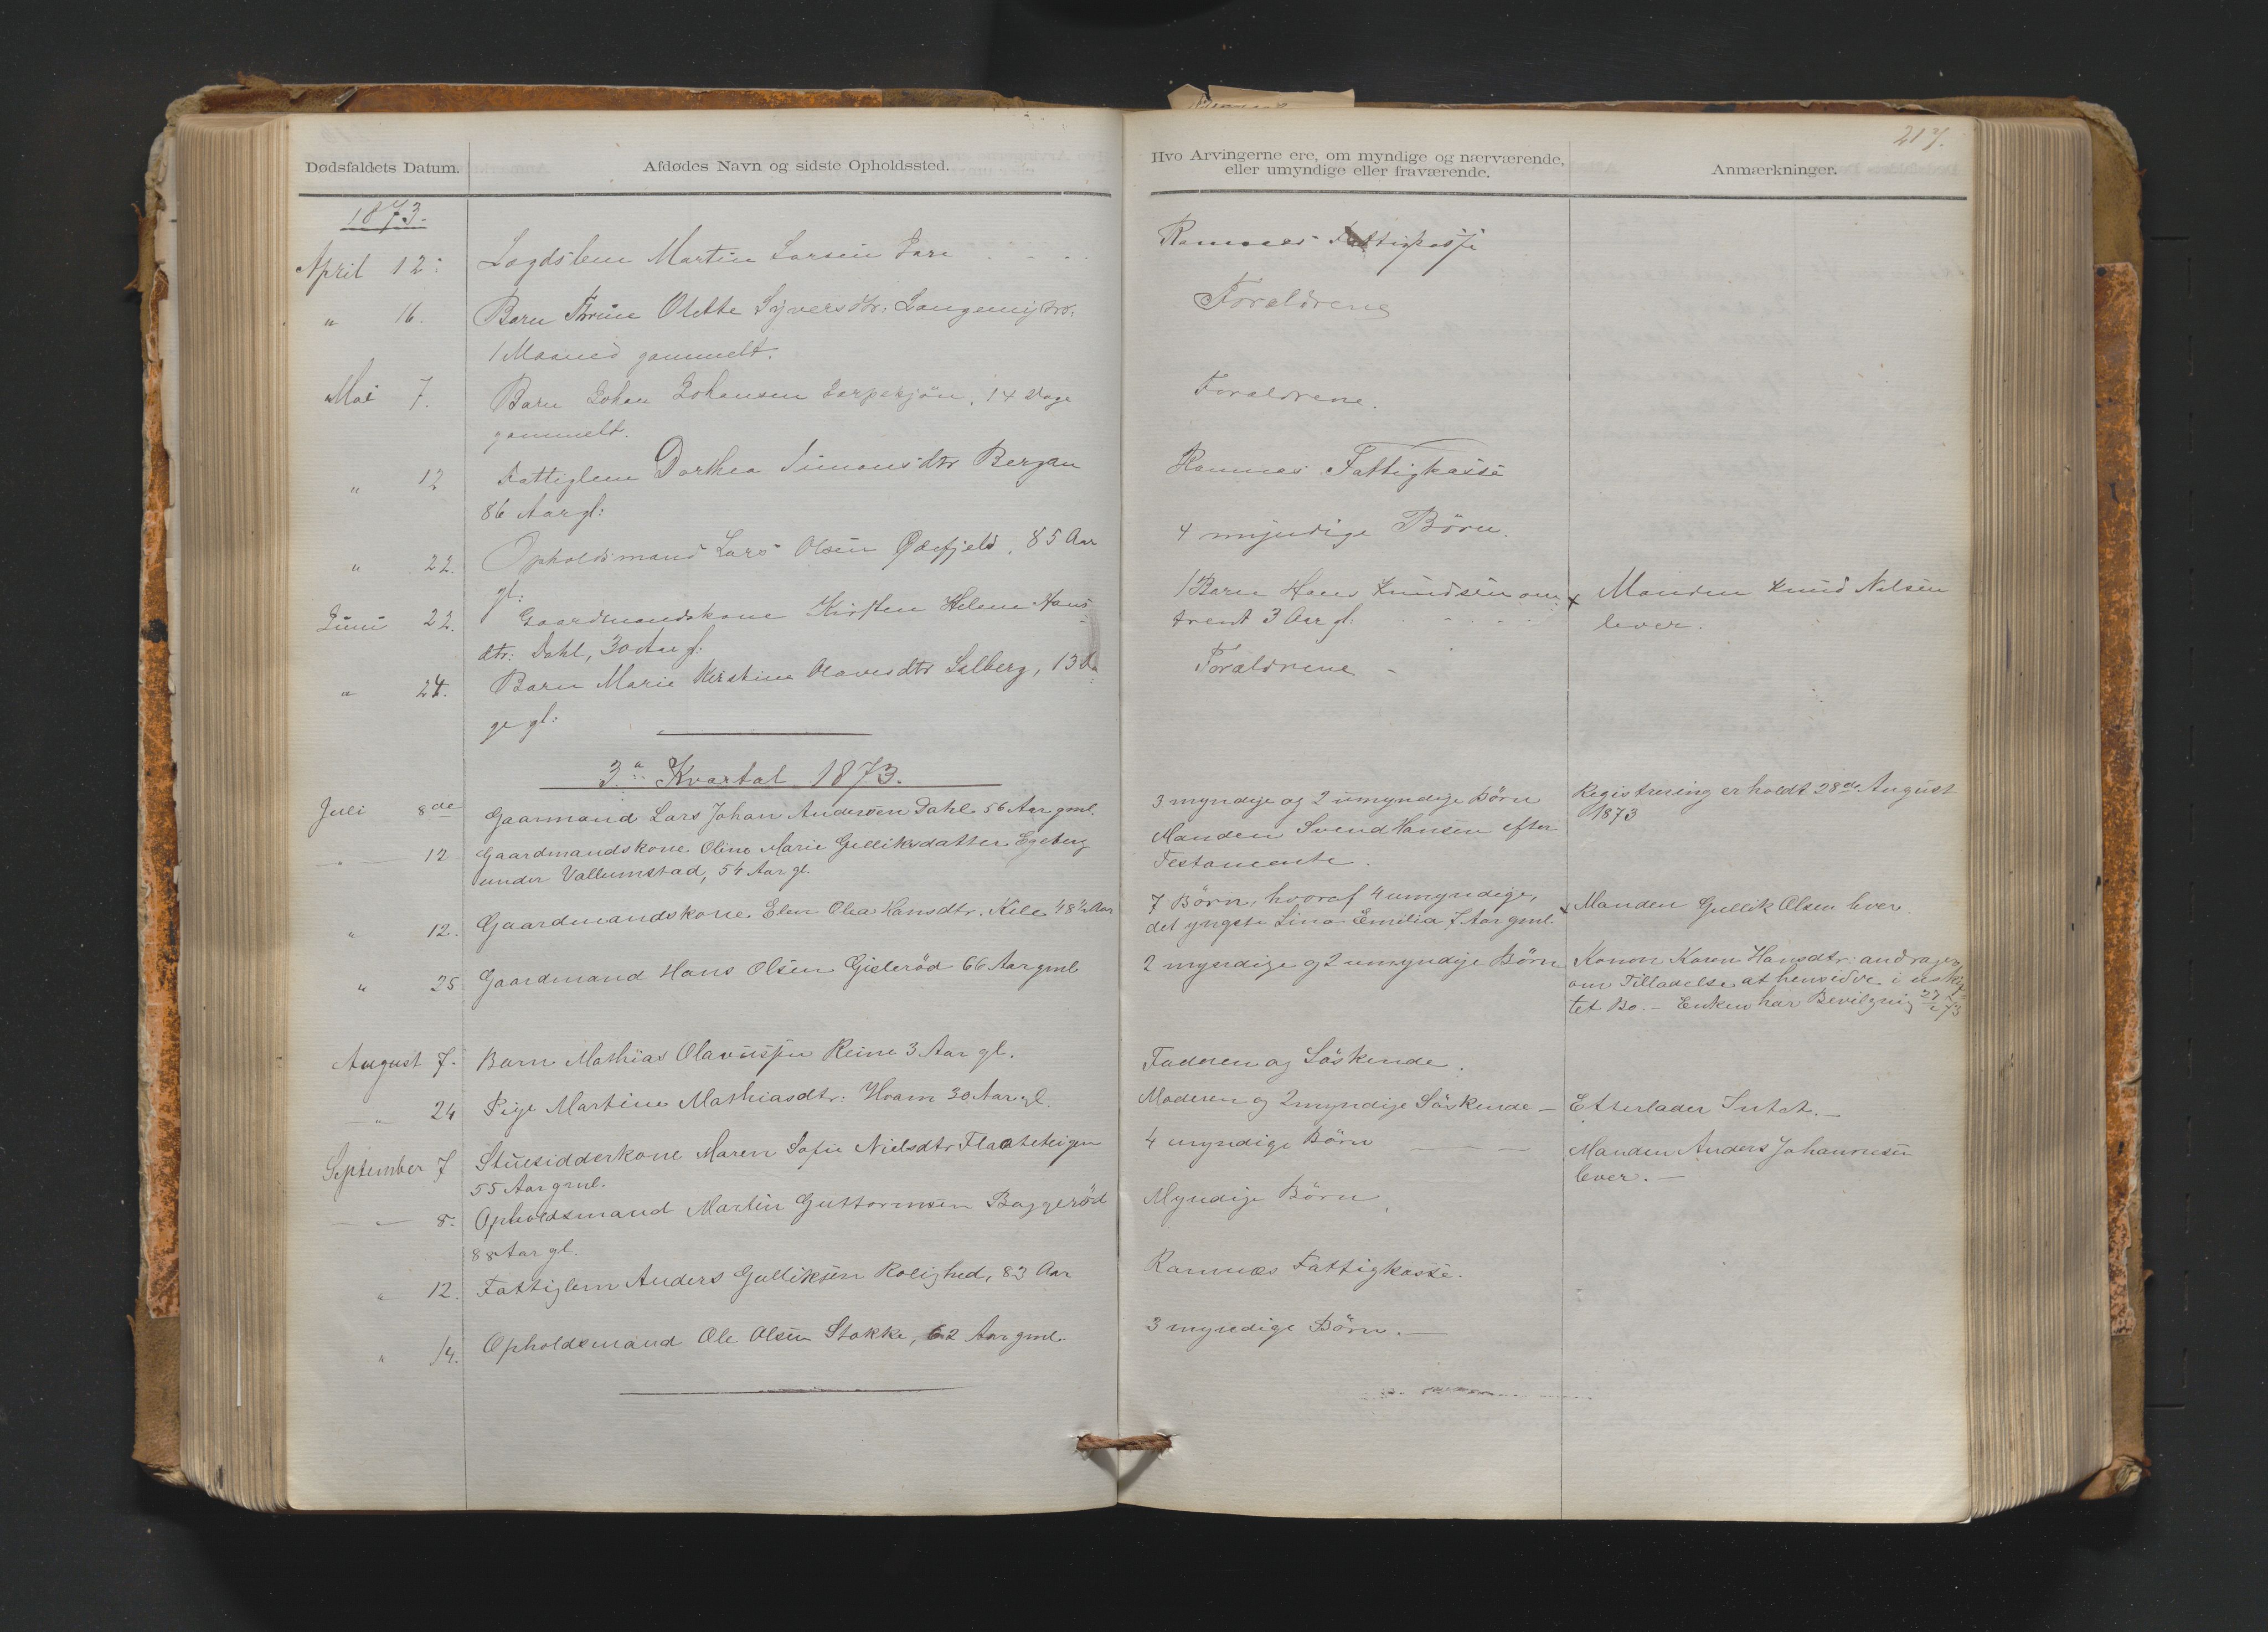 Dødsfaldets Datum.
Afdødes Navn og sidste Opholdssted.
1873.
April 12: Lægdslem Martin Larsen
" 16. Barn Thrine Olette Syversdtr:
1 Maaned gammelt.
Mai 7. Barn Johan Johansen Jerpesjøn, 14 Dage
gammelt.
" 12 Fattiglem Dorthea Simonsdtr Bergan
86 Aar gl:
" 22. Opholdsmand Lars Olsen Ødefjeld, 85 Aar
gl:
Juni 22. Gaardmandskone Kirsten Helene Hans
dtr: Dahl, 30 Aar gl:
" 24. Barn Marie Kirstine Olavesdtr Solberg, 13 Da
ge gl:
3a Kvartal 1873.
Juli 8de Gaarmand Lars Johan Andersen Dahl 56 Aar gml.
— 12 Gaardmandskone Oline Marie Gulliksdatter Egeberg
under Vallumstad, 54 Aar gl.
" 12. Gaardmandskone Elen Olea Hansdtr. Kile 48½ Aar
" 25 Gaardmand Hans Olsen Gislerød 66 Aar gml
August 7. Barn Mathias Olavussen Reine 3 Aar gl.
" 24 Pige Martine Mathiasdtr: Hvam 30 Aar gl.
September 7 Stuesidderkone Maren Sofie Nielsdtr Flaateteigen
55 Aar gml.
— 8. Opholdsmand Martin Guttormsen Baggerød
88 Aar gl.
" 12. Fattiglem Anders Gulliksen Rolighed, 83 Aar
" 14. Opholdsmand Ole Olsen Stokke, 62 Aar gml.
217.
Hvo Arvingerne ere, om myndige og nærværende,
eller umyndige eller fraværende.
Anmærkninger.
Ramnes Fattigkasse
Forældrene
Forældrene.
Ramnes Fattigkasse
4 myndige Børn.
1 Barn Hans Knudsen om
trent 3 Aar gl.
x Manden Knud Nilsen
lever.
Forældrene
3 myndige og 2 umyndige Børn
Registrering er holdt 28de August
1873
Manden Svend Hansen efter
Testamente.
7 Børn, hvoraf 4 umyndige,
det yngste Lina Emilia 7 Aar gml.
x Manden Gullik Olsen lever.
2 myndige og 2 umyndige Børn
Konen Karen Hansdtr: andrager
om Tilladelse at hensidde i uskif
tet Bo. – Enken har Bevilgning
Faderen og Søskende.
Moderen og 2 myndige Søskende – Efterlader Intet. –
4 myndige Børn
Manden Anders Johannesen
lever. –
Myndige Børn
Ramnæs Fattigkasse.
3 myndige Børn. –